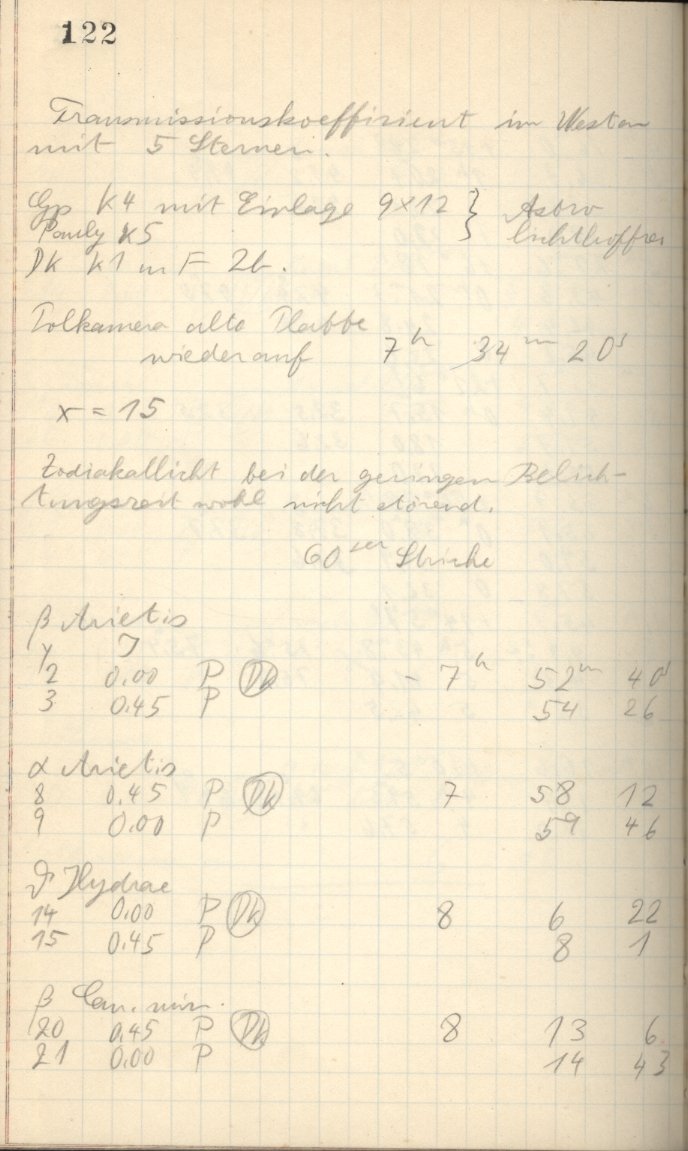 122
Transmissionskoeffizient im Westen
mit 5 Sternen.
Gp K4 mit Einlage 9x12 } Astro
Pauly K5
Dk K1 m F 2b.
Polkamera alte Platte
wieder auf 7h 34m 20s
x = 15
Zodiakallicht bei der geringen Belich-
tungszeit wohl nicht störend.
60 sec Striche
β Arietis
y J
2 0.00 P Dk - 7h 52m 40s
3 0.45 P 54 26
α Arietis
8 0.45 P Dk 7 58 12
9 0.00 P 59 46
ϑ Hydrae
14 0.00 P Dk 8 6 22
15 0.45 P 8 1
β Can. min.
20 0.45 P Dk 8 13 6
21 0.00 P 14 43